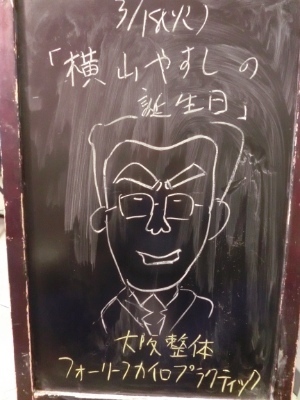 3/18(火)
「横山やすしの
誕生日」
大阪整体
フォーリーフカイロプラクティック